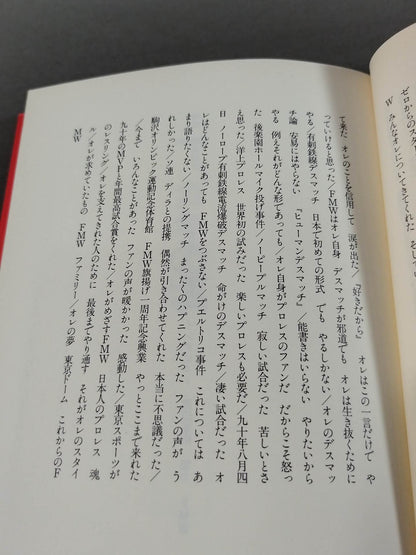 ゼロからのス
W みんなオレのこ
て来た オレのことを信用して 涙が出た/「好きだから」 オレはこの一言だけで や
っていけると思った/FMWはオレ自身 デスマッチが邪道でも オレは生き抜くために
やる/有刺鉄線デスマッチ 日本で初めての形式 でも やるしかない/オレのデスマッ
チ論 安易にはやらない 「ヒューマンデスマッチ」/能書きはいらない やりたいから
やる 例えそれがどんな形であっても/オレ自身がプロレスのファンだ だからこそ怒っ
た 後楽園ホールマイク投げ事件/ノーピープルマッチ 寂しい試合だった 苦しいとさ
え思った/洋上プロレス 世界初の試みだった 楽しいプロレスも必要だ/九十年八月四
日 ノーロープ有刺鉄線電流爆破デスマッチ 命がけのデスマッチ/凄い試合だった オ
レはどんなことがあっても FMWをつぶさない/プエルトリコ事件 これについては あ
まり語りたくない/ノーリングマッチ まったくのハプニングだった ファンの声が う
れしかった/ソ連 ディラとの提携 偶然が引き合わせてくれた 本当に不思議だった/
駒沢オリンピック運動記念体育館 FMW旗揚げ一周年記念興業 やっとここまで来れた
/今まで いろんなことがあった ファンの声が暖かかった 感動した/東京スポーツが
九十年のMVPと年間最高試合賞をくれた/オレがめざすFMW 日本人のプロレス 魂
のレスリング/オレを支えてきれた人のために 最後までやり通す それがオレのスタイ
ル/オレが求めていたもの FMW ファミリー/オレの夢 東京ドーム これからのF
MW